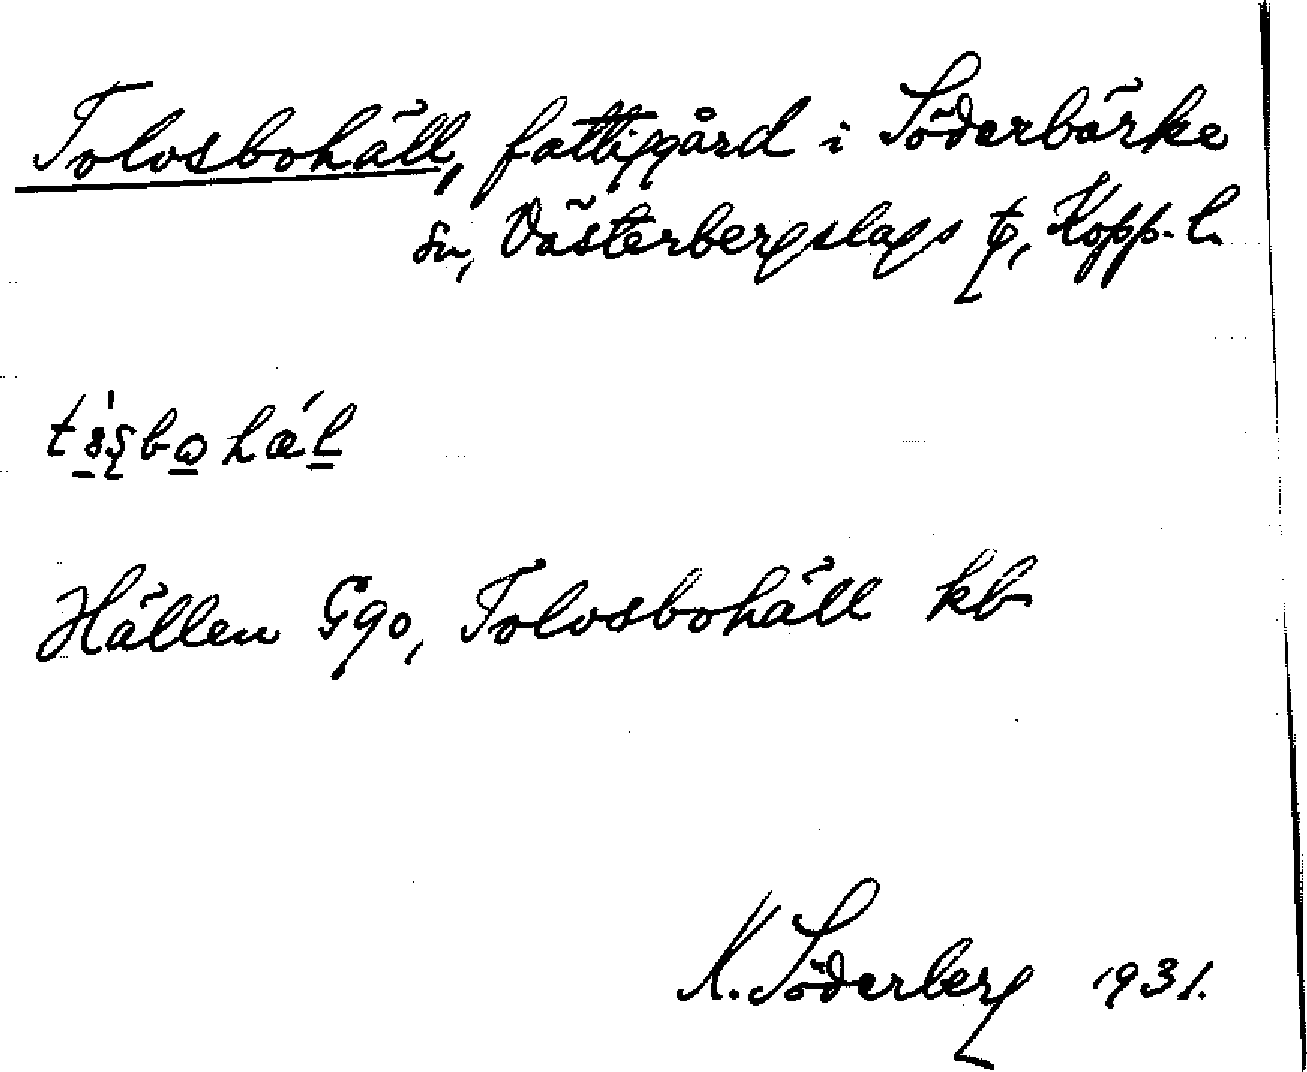 Tolvsbohäll, fattiggård i Söderbärke
sn, Västerbergslags tg, Kopp. l.
Hällen Ggo, Tolvsbohäll kb
K. Söderberg 1931.